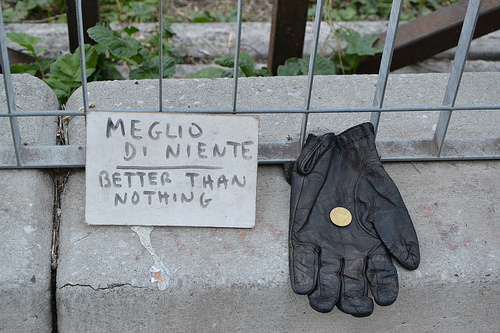 MEGLIO
DI NIENTE
BETTER THAN
NOTHING